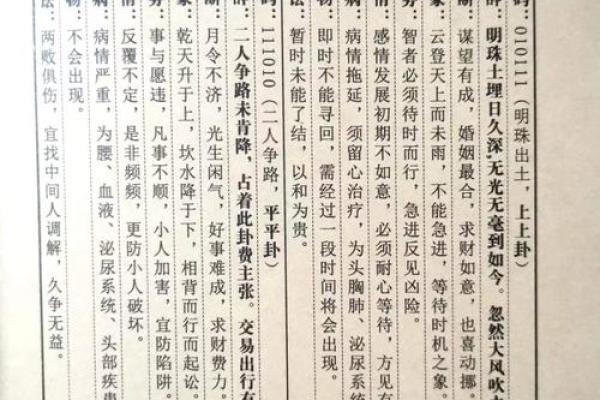 码：010111（明珠出土，上上卦）
辞：明珠土埋日久深,无光无毫到如今。忽然大风吹
断：谋望有成，婚姻最合，求财如意，也喜动挪。
象：云登天上而未雨，不能急进，等待时机之象。
务：智者必须待时而行，急进反见凶险。
情：感情发展初期不如意，必须耐心等待，方见有
病：病情拖延，须留心治疗，为头胸肺、泌尿系统
物：即时不能寻回，需经过一段时间将会出现。
讼：暂时未能了结，以和为贵。
码：111010（二人争路，平平卦）
辞：二人争路未肯降，占着此卦费主张。交易出行有
断：月令不济，光生闲气，好事难成，求财费力。
象：乾天升于上，坎水降于下，相背而行而起讼。
务：事与愿违，凡事不顺，小人加害，宜防陷阱。
情：反覆不定，是非频频，更防小人破坏。
病：病情严重，为腰、血液、泌尿系统、头部疾患
物：不会出现。
讼：两败俱伤，宜找中间人调解，久争无益。